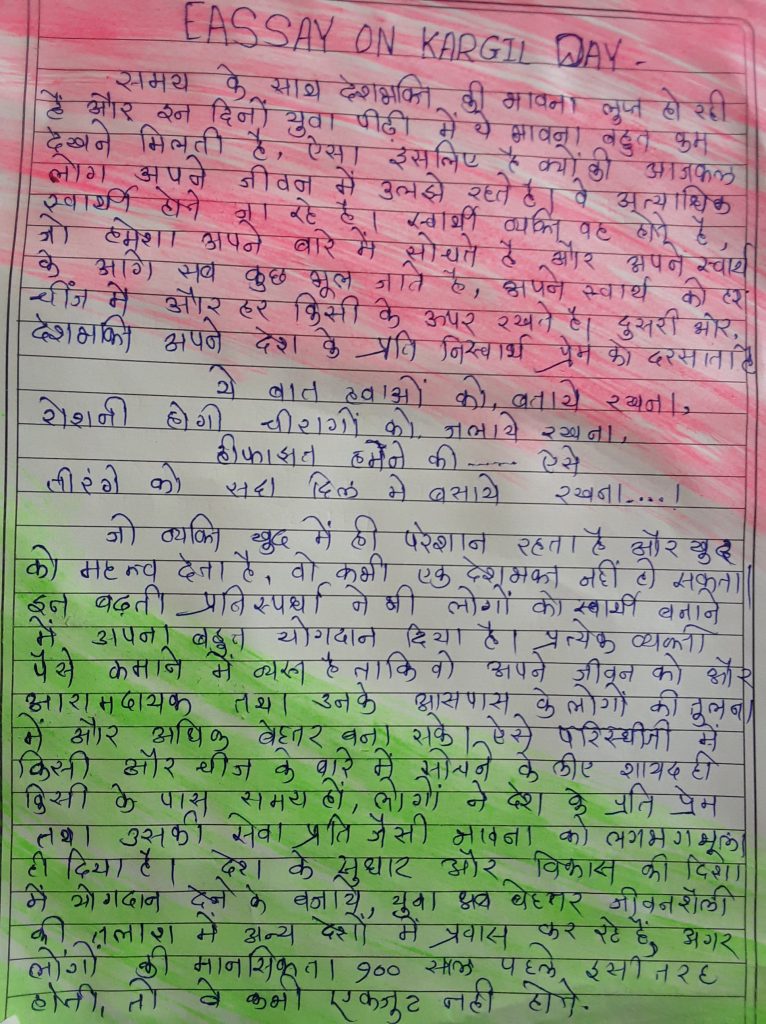 EASSAY ON KARGIL DAY -
समय के साथ देशभक्ति की भावना लुप्त हो रही
है और इन दिनों युवा पीढ़ी में ये भावना बहुत कम
देखने मिलती है, ऐसा इसलिए है क्यों की आजकल
लोग अपने जीवन में उलझे रहते है। वे अत्याधिक
स्वार्थी होते जा रहे है। स्वार्थी व्यक्ति वह होते है,
जो हमेशा अपने बारे में सोचते है और अपने स्वार्थ
के आगे सब कुछ भूल जाते है, अपने स्वार्थ को हर
चींज में और हर किसी के ऊपर रखते है। दुसरी ओर,
देशभक्ती अपने देश के प्रति निस्वार्थ प्रेम को दरसाता है
ये बात हवाओं को, बताये रखना,
रोशनी होगी चीरागों को, जलाये रखना,
हीफाझत हमेने की ---- ऐसे
तीरंगे को सदा दिल मे बसाये रखना....!
जो व्यक्ति खुद में ही परेशान रहता है और खुद
को महत्त्व देता है, वो कभी एक देशभक्त नहीं हो सकता।
इन बढ़ती प्रतिस्पर्धा ने भी लोगों को स्वार्थी बनाने
में अपना बहुत योगदान दिया है। प्रत्येक व्यक्ती
पैसे कमाने में व्यस्त है ताकि वो अपने जीवन को और
आरामदायक तथा उनके आसपास के लोगों की तुलना
में और अधिक बेहतर बना सके। ऐसे परिस्थीती में
किसी और चीज के बारे में सोचने के लीए शायद ही
किसी के पास समय हों, लोगों ने देश के प्रति प्रेम
तथा उसकी सेवा प्रति जैसी भावना को लगभग भूला
ही दिया है। देश के सुधार और विकास की दिशा
में योगदान देने के बजाये, युवा अब बेहतर जीवनशैली
की तलाश में अन्य देशों में प्रवास कर रहे हैं, अगर
लोंगों की मानसिकता १०० साल पहले इसी तरह
होती, तो वे कभी एकजुट नही होते.